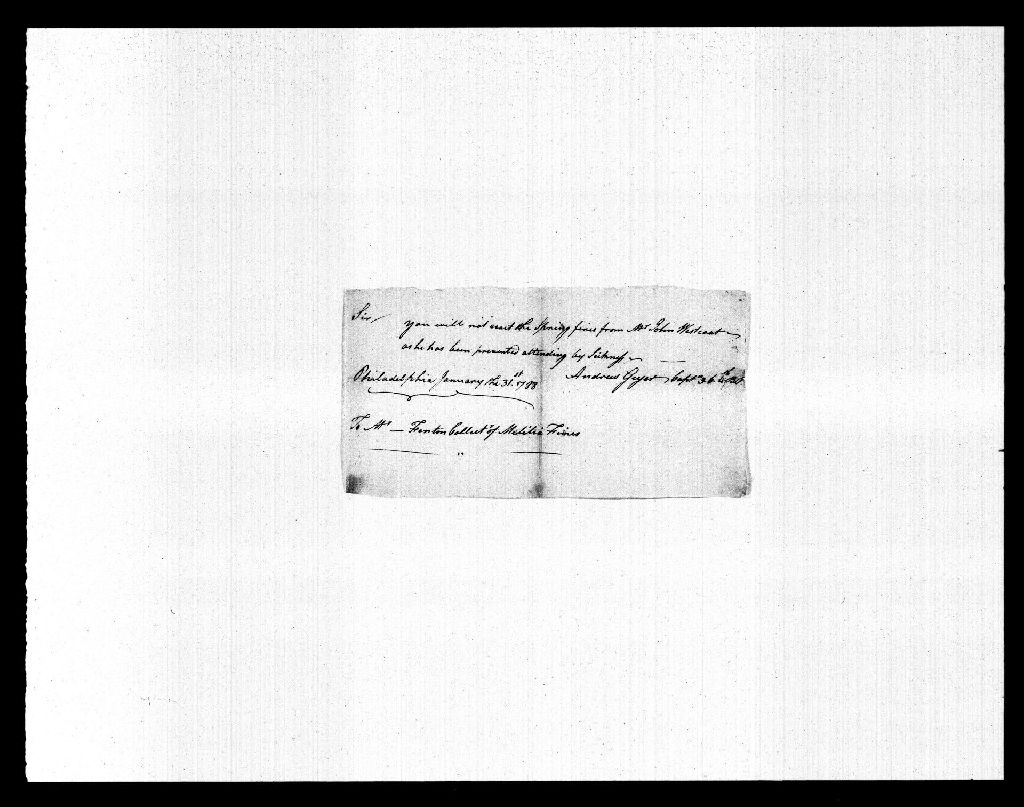 Sir,
you will not exact the Springs fines from Mr. John Westcoat
as he has been prevented attending by Sickness
Philadelphia January the 31.st 1788 Andrew Geyer Capt.
To Mr — Fenton Collectr of Melitia Fines